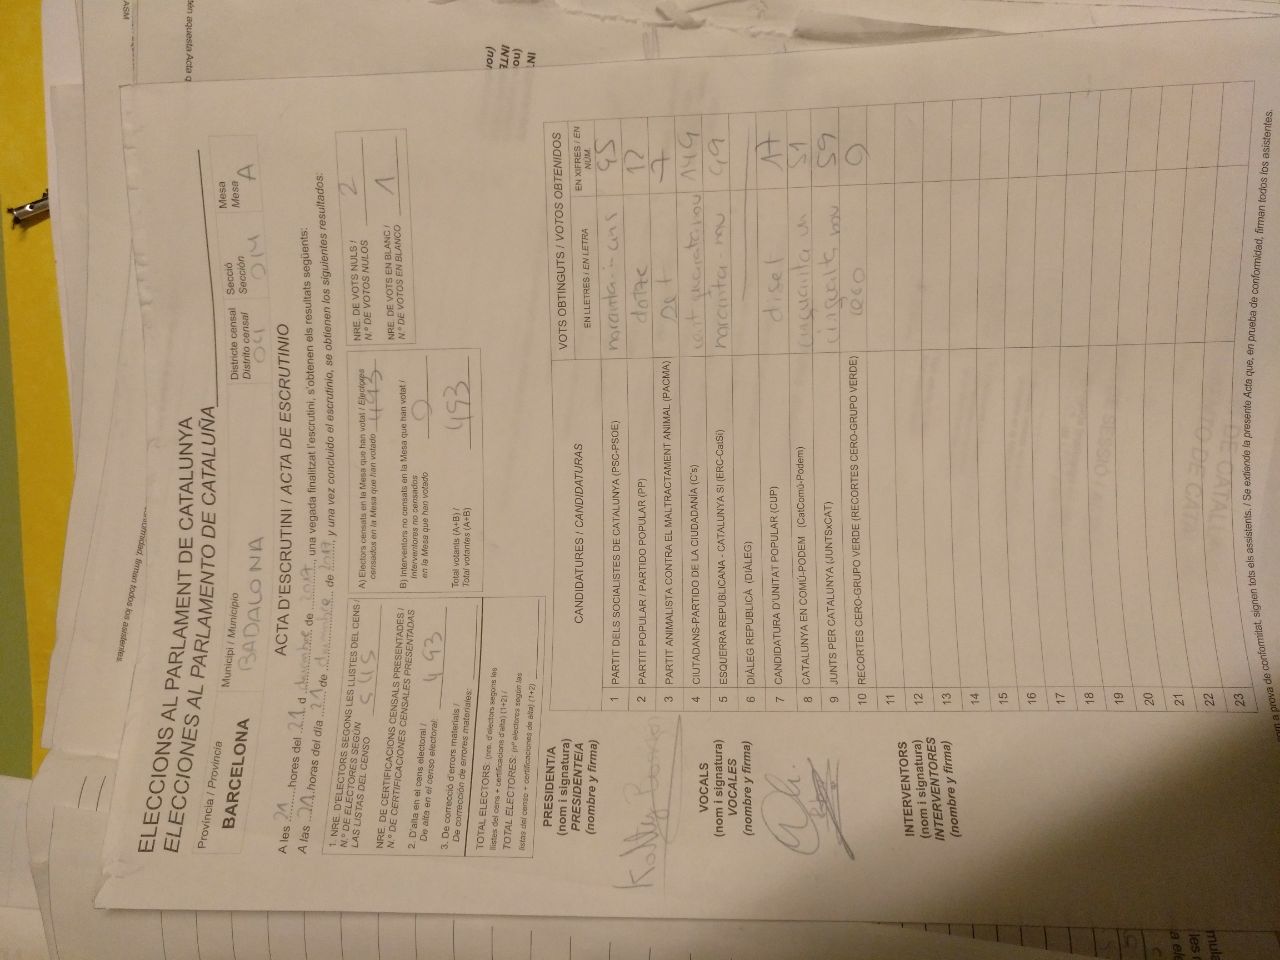 ELECCIONS AL PARLAMENT DE CATALUNYA
ELECCIONES AL PARLAMENTO DE CATALUÑA
Província / Provincia
BARCELONA
Municipi / Municipio
BADALONA
Districte censal
Distrito censal
04
Secció
Sección
014
Mesa
Mesa
A
ACTA D'ESCRUTINI / ACTA DE ESCRUTINIO
A les 21 hores del 21 d desembre de 2017, una vegada finalitzat l'escrutini, s'obtenen els resultats següents:
A las 21 horas del día 21 de diciembre de 2017, y una vez concluido el escrutinio, se obtienen los siguientes resultados:
1. NRE. D'ELECTORS SEGONS LES LLISTES DEL CENS /
N.º DE ELECTORES SEGÚN
LAS LISTAS DEL CENSO
NRE. DE CERTIFICACIONS CENSALS PRESENTADES /
N.º DE CERTIFICACIONES CENSALES PRESENTADAS
2. D'alta en el cens electoral /
De alta en el censo electoral:
493
3. De correcció d'errors materials /
De corrección de errores materiales:
TOTAL ELECTORS: (nre. d'electors segons les
llistes del cens + certificacions d'alta) (1+2) /
TOTAL ELECTORES: (nº electores según las
listas del censo + certificaciones de alta) (1+2)
A) Electors censats en la Mesa que han votat / Electores
censados en la Mesa que han votado 493
B) Interventors no censats en la Mesa que han votat /
Interventores no censados
en la Mesa que han votado
0
Total votants (A+B) /
Total votantes (A+B)
493
NRE. DE VOTS NULS /
N.º DE VOTOS NULOS
2
NRE. DE VOTS EN BLANC /
N.º DE VOTOS EN BLANCO
1
CANDIDATURES / CANDIDATURAS
VOTS OBTINGUTS / VOTOS OBTENIDOS
EN LLETRES / EN LETRA
EN XIFRES / EN NÚM.
1 PARTIT DELS SOCIALISTES DE CATALUNYA (PSC-PSOE) noranta-cinc 95
2 PARTIT POPULAR / PARTIDO POPULAR (PP) dotze 12
3 PARTIT ANIMALISTA CONTRA EL MALTRACTAMENT ANIMAL (PACMA) set 7
4 CIUTADANS-PARTIDO DE LA CIUDADANÍA (C's) 149
5 ESQUERRA REPUBLICANA - CATALUNYA SÍ (ERC-CatSí) noranta-nou 99
6 DIÀLEG REPUBLICÀ (DIÀLEG)
7 CANDIDATURA D'UNITAT POPULAR (CUP) diset 17
8 CATALUNYA EN COMÚ-PODEM (CatComú-Podem) cinquanta un 51
9 JUNTS PER CATALUNYA (JUNTSxCAT) cinquanta nou 59
10 RECORTES CERO-GRUPO VERDE (RECORTES CERO-GRUPO VERDE) zero 0
11
12
13
14
15
16
17
18
19
20
21
22
23
PRESIDENT/A
(nom i signatura)
PRESIDENTE/A
(nombre y firma)
VOCALS
(nom i signatura)
VOCALES
(nombre y firma)
INTERVENTORS
(nom i signatura)
INTERVENTORES
(nombre y firma)
a prova de conformitat, signen tots els assistents. / Se extiende la presente Acta que, en prueba de conformidad, firman todos los asistentes.